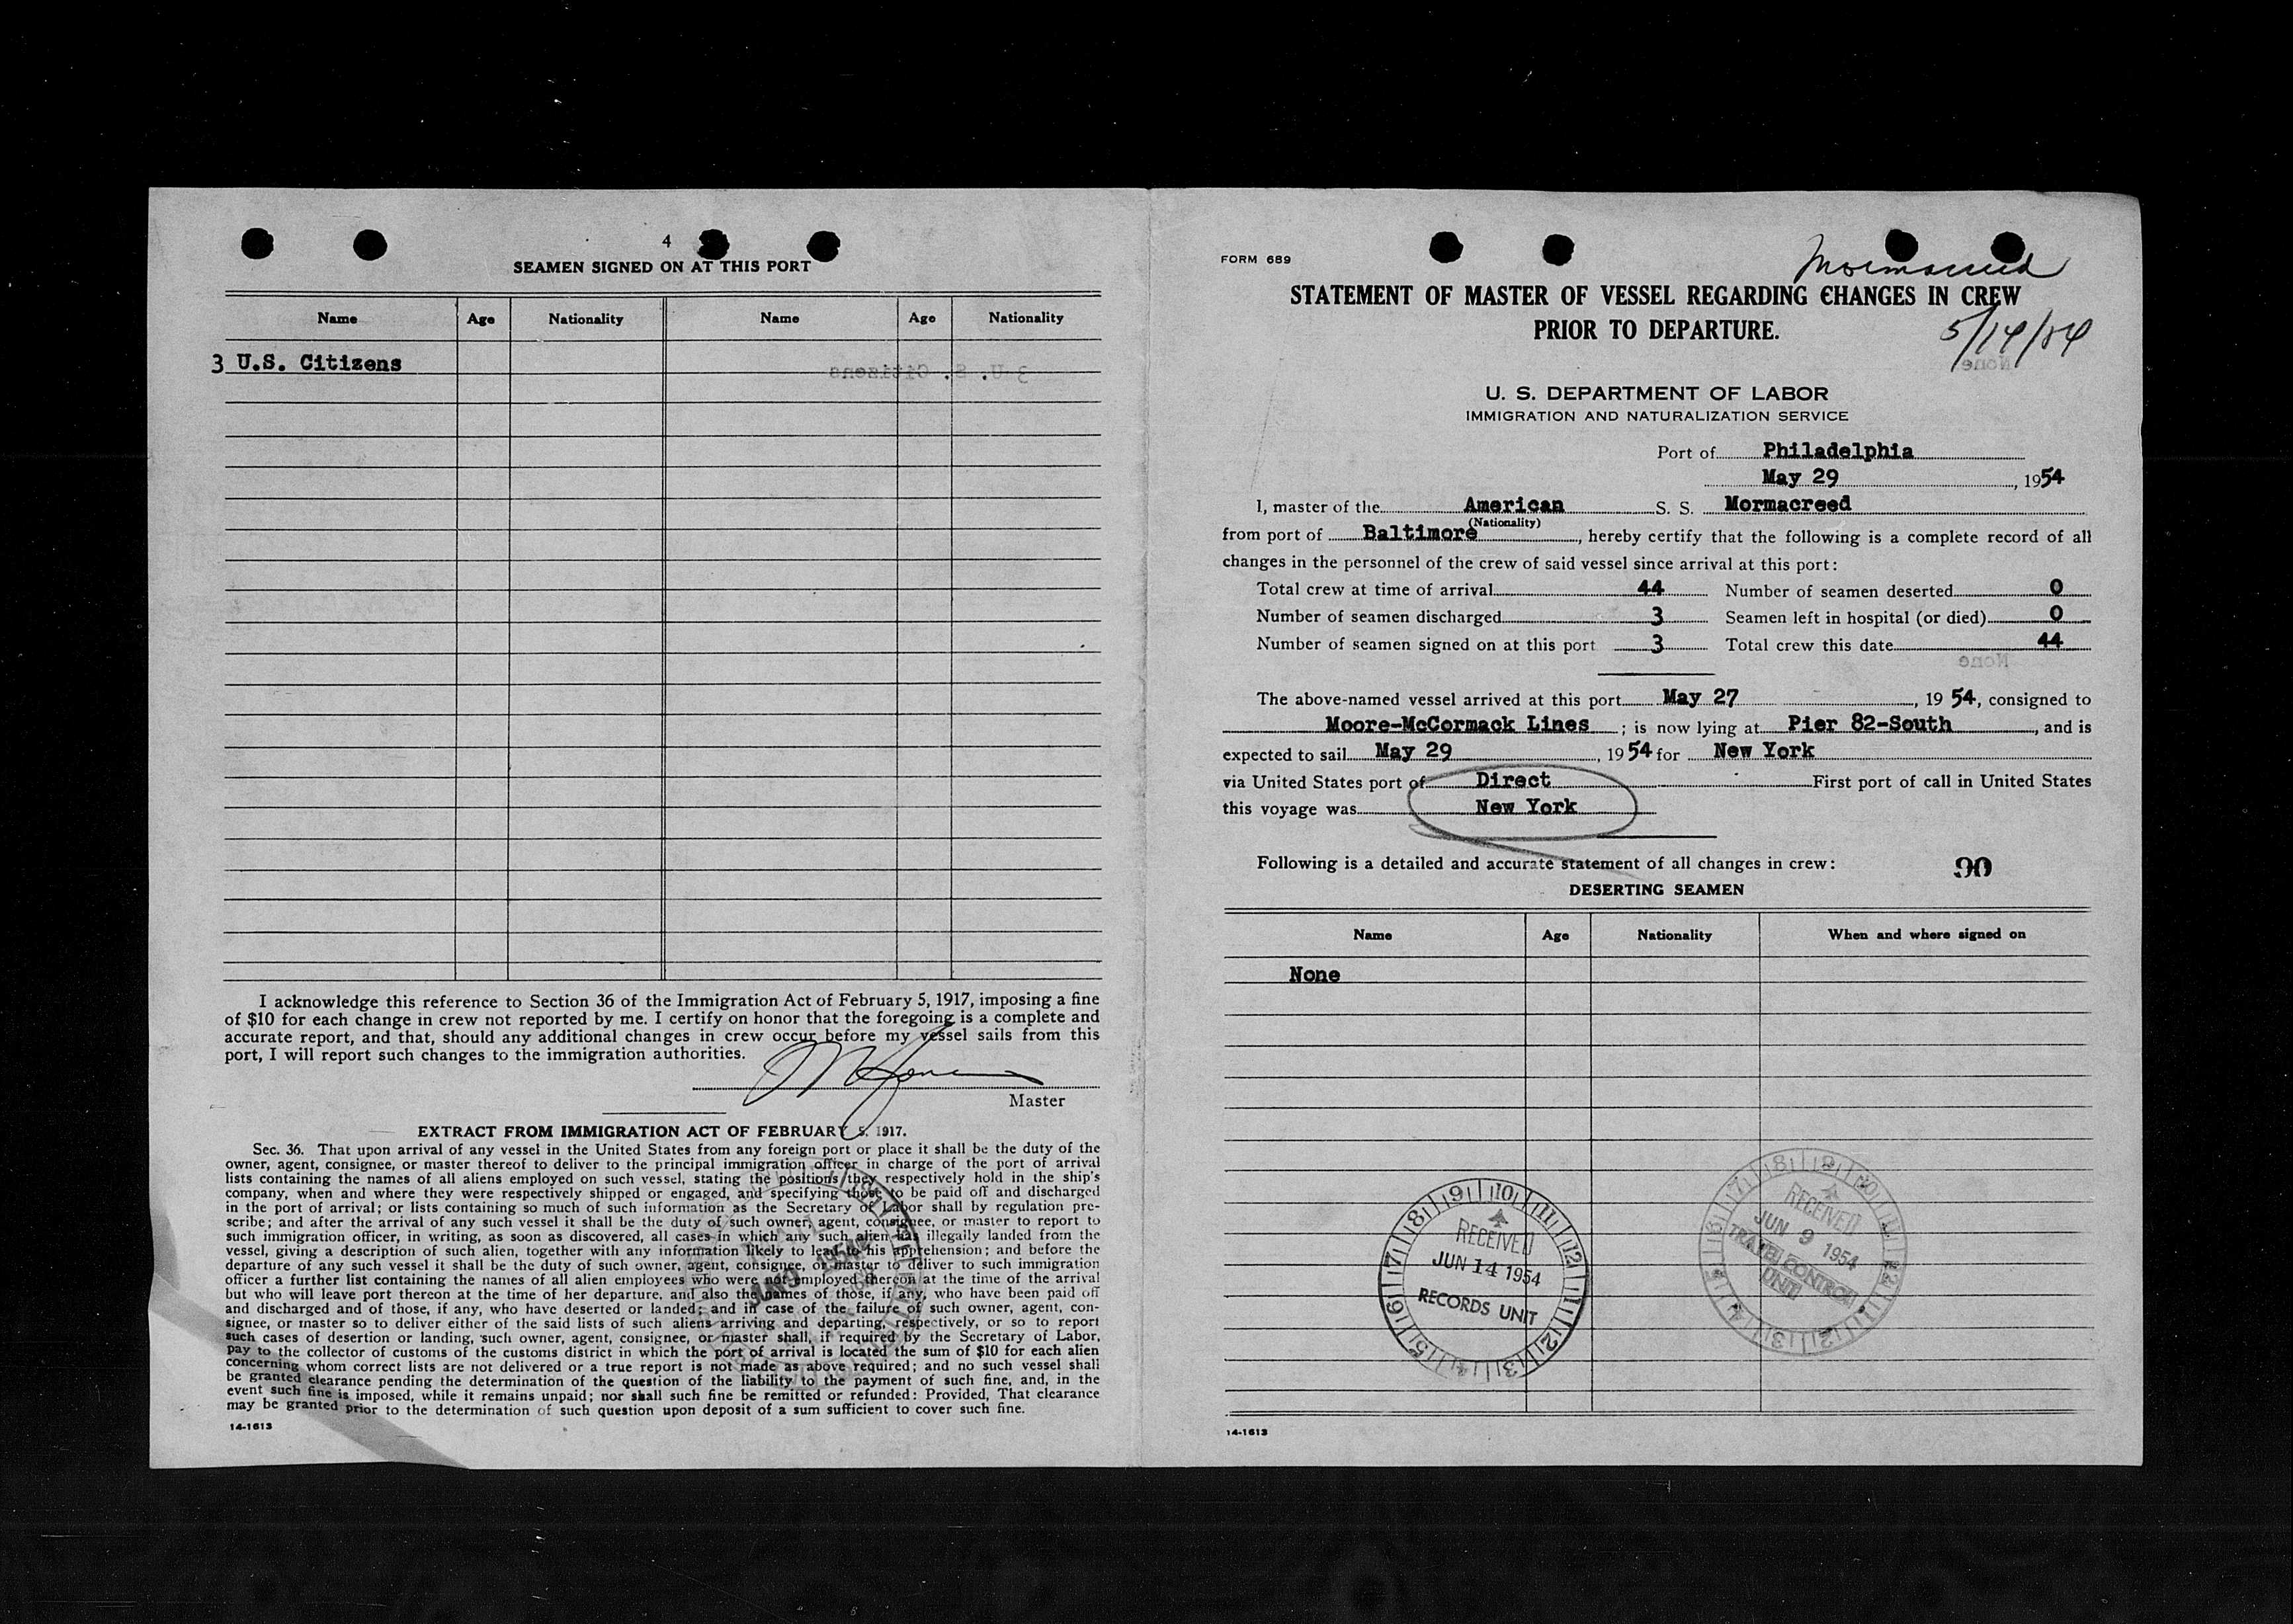 4
SEAMEN SIGNED ON AT THIS PORT
Name Age Nationality Name Age Nationality
3 U.S. Citizens
I acknowledge this reference to Section 36 of the Immigration Act of February 5, 1917, imposing a fine
of $10 for each change in crew not reported by me. I certify on honor that the foregoing is a complete and
accurate report, and that, should any additional changes in crew occur before my vessel sails from this
port, I will report such changes to the immigration authorities.
Master
EXTRACT FROM IMMIGRATION ACT OF FEBRUARY 5, 1917.
Sec. 36. That upon arrival of any vessel in the United States from any foreign port or place it shall be the duty of the
owner, agent, consignee, or master thereof to deliver to the principal immigration officer in charge of the port of arrival
lists containing the names of all aliens employed on such vessel, stating the positions they respectively hold in the ship's
company, when and where they were respectively shipped or engaged, and specifying those to be paid off and discharged
in the port of arrival; or lists containing so much of such information as the Secretary of Labor shall by regulation pre-
scribe; and after the arrival of any such vessel it shall be the duty of such owner, agent, consignee, or master to report to
such immigration officer, in writing, as soon as discovered, all cases in which any such alien has illegally landed from the
vessel, giving a description of such alien, together with any information likely to lead to his apprehension; and before the
departure of any such vessel it shall be the duty of such owner, agent, consignee, or master to deliver to such immigration
officer a further list containing the names of all alien employees who were not employed thereon at the time of the arrival
but who will leave port thereon at the time of her departure, and also the names of those, if any, who have been paid off
and discharged and of those, if any, who have deserted or landed; and in case of the failure of such owner, agent, con-
signee, or master so to deliver either of the said lists of such aliens arriving and departing, respectively, or so to report
such cases of desertion or landing, such owner, agent, consignee, or master shall, if required by the Secretary of Labor,
pay to the collector of customs of the customs district in which the port of arrival is located the sum of $10 for each alien
concerning whom correct lists are not delivered or a true report is not made as above required; and no such vessel shall
be granted clearance pending the determination of the question of the liability to the payment of such fine, and, in the
event such fine is imposed, while it remains unpaid; nor shall such fine be remitted or refunded: Provided, That clearance
may be granted prior to the determination of such question upon deposit of a sum sufficient to cover such fine.
14-1613
FORM 689
Mormacreed
STATEMENT OF MASTER OF VESSEL REGARDING CHANGES IN CREW
PRIOR TO DEPARTURE.
5/14/54
U. S. DEPARTMENT OF LABOR
IMMIGRATION AND NATURALIZATION SERVICE
Port of Philadelphia
May 29, 1954
I, master of the American S. S. Mormacreed
(Nationality)
from port of Baltimore, hereby certify that the following is a complete record of all
changes in the personnel of the crew of said vessel since arrival at this port:
Total crew at time of arrival 44 Number of seamen deserted 0
Number of seamen discharged 3 Seamen left in hospital (or died) 0
Number of seamen signed on at this port 3 Total crew this date 44
The above-named vessel arrived at this port May 27, 19 54, consigned to
Moore-McCormack Lines; is now lying at Pier 82-South, and is
expected to sail May 29, 19 54 for New York
via United States port of Direct First port of call in United States
this voyage was New York
Following is a detailed and accurate statement of all changes in crew: 90
DESERTING SEAMEN
Name Age Nationality When and where signed on
None
RECEIVED
JUN 14 1954
RECORDS UNIT
RECEIVED
JUN 9 1954
TRAVEL CONTROL
UNIT
14-1613